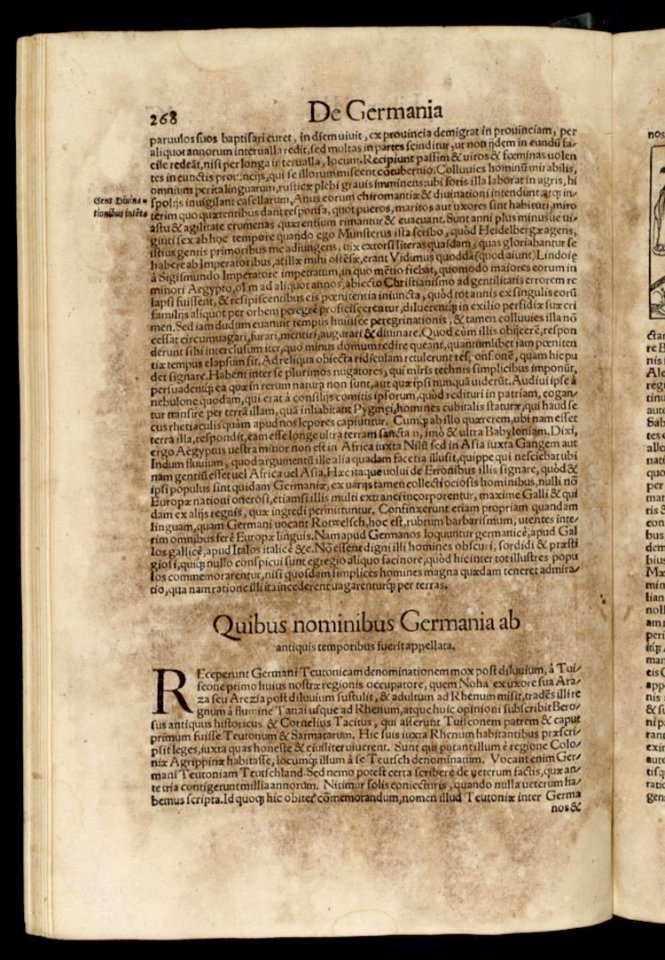 268
De Germania
paruulos suos baptisari curet, in diem uiuit, ex prouincia demigrat in prouinciam, per
aliquot annorum interualla redit, sed multas in partes scinditur, ut non ijdem in eundũ fa-
cile redeãt, nisi per longa interualla, locum. Recipiunt passim & uiros & fœminas uolen
tes in cunctis prouincijs, qui se illorum miscent cõtubernio. Colluuies hominũ mirabilis,
omnium perita linguarum, rusticæ plebi grauis imminens: ubi foris illa laborat in agris, hi
Gens Diuina-
tionibus intẽta
spolijs inuigilant casellarum. Anus eorum chiromantiæ & diuinationi intendunt, atq; in-
terim quo quærentibus dant responsa, quot pueros, maritos aut uxores sint habituri, miro
astu & agilitate crumenas quærentium rimantur & euacuant. Sunt anni plus minusue ui-
ginti sex ab hoc tempore quando ego Munsterus ista scribo, quòd Heidelbergæ agens,
istius gentis primoribus me adiungens, uix extorsi literas quasdam, quas gloriabantur se
habere ab Imperatoribus, at illæ mihi ostẽsæ, erant Vidimus quoddã (quod aiunt) Lindoiæ
à Sigismundo Imperatore impetratum, in quo mẽtio fiebat, quomodo maiores eorum in
minori Aegypto, olim ad aliquot annos, abiecto Christianismo ad gentilitatis errorem re
lapsi fuissent, & resipiscentibus eis pœnitentia iniuncta, quòd tot annis ex singulis eorũ
familijs aliquot per orbem peregrè proficisceretur, diluerentq; in exilio perfidiæ suæ cri
men. Sed iam dudum euanuit tempus huiusce peregrinationis, & tamen colluuies illa nõ
cessat circumuagari, furari, mentiri, augurari & diuinare. Quod cùm illis obijcerẽ, respon
derunt sibi interclusum iter, quo minus domum redire queant, quantumlibet iam pœniten
tiæ tempus elapsum sit. Ad reliqua obiecta ridiculam retulerunt responsionẽ, quam hic pu
det signare. Habent inter se plurimos nugatores, qui miris technis simplicibus imponũt,
persuadentq; ea quæ in rerum natura non sunt, aut quæ ipsi nunquã uiderũt. Audiui ipse à
nebulone quodam, qui erat à consilijs comitis ipsorum, quòd redituri in patriam, cogan-
tur transire per terrã illam, quã inhabitant Pygmei, homines cubitalis staturæ, qui haud se
cus rhetiaculis quàm apud nos lepores capiuntur. Cumq; ab illo quærerem, ubi nam esset
terra illa, respondit, eam esse longe ultra terram sanctam, imò & ultra Babyloniam. Dixi,
ergo Aegyptus uestra minor non est in Africa iuxta Nilũ sed in Asia iuxta Gangem aut
Indum fluuium, quod argumentũ ille alia quadam facetia illusit, quippe qui nesciebat ubi
nam gentiũ esset uel Africa uel Asia. Hæc itaque uolui de Erronibus illis signare, quòd &
ipsi populus sint quidam Germaniæ, ex uarijs tamen collecti ociosis hominibus, nulli nõ
Europæ nationi onerosi, etiamsi illis multi extranei incorporentur, maxime Galli & qui
dam ex alijs regnis, quæ ingredi permittuntur. Confinxerunt etiam propriam quandam
linguam, quam Germani uocant Rotwelsch, hoc est, rubrum barbarismum, utentes inte-
rim omnibus ferè Europæ linguis. Nam apud Germanos loquuntur germanicè, apud Gal
los gallicè, apud Italos italicè &c. Nõ essent digni illi homines obscuri, sordidi & præsti
giosi, quiq; nullo conspicui sunt egregio aliquo facinore, quòd hic inter tot illustres popu
los commemorarentur, nisi quosdam simplices homines magna quædam teneret admira-
tio, qua nam ratione illi ita incederent uagarenturq; per terras.
Quibus nominibus Germania ab
antiquis temporibus fuerit appellata.
REceperunt Germani Teutonicam denominationem mox post diluuium, à Tui-
scone primo huius nostræ regionis occupatore, quem Noha ex uxore sua Ara-
za seu Arezia post diluuium sustulit, & adultum ad Rhenum misit, tradẽs illi re
gnum à flumine Tanai usque ad Rhenum, atque huic opinioni subscribit Bero-
sus antiquus historicus & Cornelius Tacitus, qui asserunt Tuisconem patrem & caput
primum fuisse Teutonum & Sarmatarum. Hic suis iuxta Rhenum habitantibus præscri-
psit leges, iuxta quas honeste & ciuiliter uiuerent. Sunt qui putant illum è regione Colo-
niæ Agrippinæ habitasse, locumq; illum à se Teutsch denominatum. Vocant enim Ger-
mani Teutoniam Teutschland. Sed nemo potest certa scribere de ueterum factis, quæ an-
te tria contigerunt millia annorum. Nitimur solis coniecturis, quando nulla ueterum ha-
bemus scripta. Id quoq; hic obiter cõmemorandum, nomen illud Teutoniæ inter Germa
nos &